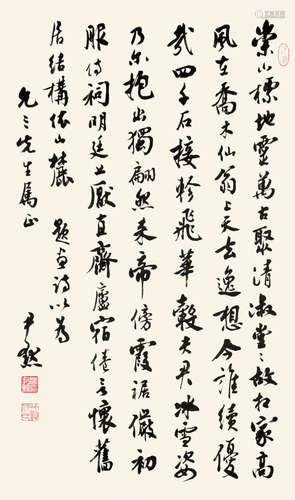 崇山標地靈萬古聚清淑堂堂故相家高
風在喬木仙翁上天去逸想今誰續優
哉四千石接軫飛華轂夫君冰雪姿
乃尔抱幽獨翩然来帝傍霞裾儼初
服侍祠明廷上厭直齋廬宿倦言懷舊
居結構依山麓 題画詩以爲
允先生属正
尹默